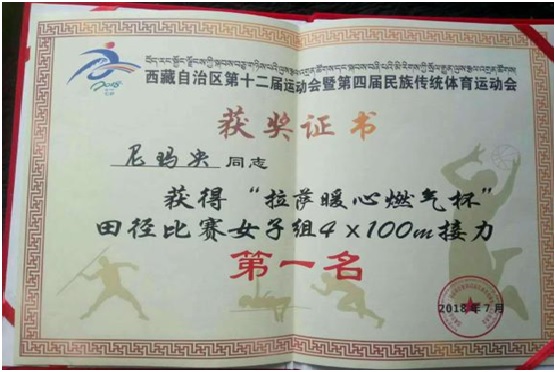 西藏自治区第十二届运动会暨第四届民族传统体育运动会
获奖证书
尼玛央 同志
获得“拉萨暖心燃气杯”
田径比赛女子组4×100m接力
第一名
2018年7月